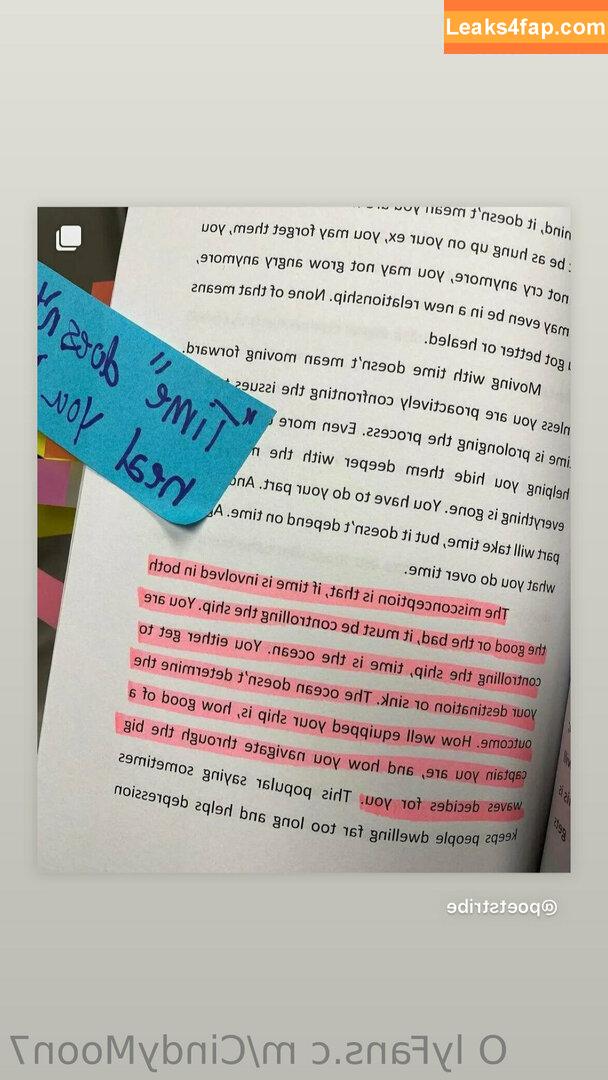 Leaks4fap.com
it doesn't mean you
be as hung up on your ex, you may forget them, you
not cry anymore, you may not grow angry anymore,
may even be in a new relationship. None of that means
got better or healed.
Moving with time doesn't mean moving forward.
you are proactively confronting the issues
is prolonging the process. Even more
helping you hide them deeper with the
everything is gone. You have to do your part. And
part will take time, but it doesn't depend on time.
what you do over time.
The misconception is that, if time is involved in both
the good or the bad, it must be controlling the ship. You are
controlling the ship, time is the ocean. You either get to
your destination or sink. The ocean doesn't determine the
outcome. How well equipped your ship is, how good of a
captain you are, and how you navigate through the big
waves decides for you. This popular saying sometimes
keeps people dwelling far too long and helps depression
* "Time does
heal you
@poetstribe
O lyFans.c m/CindyMoon7